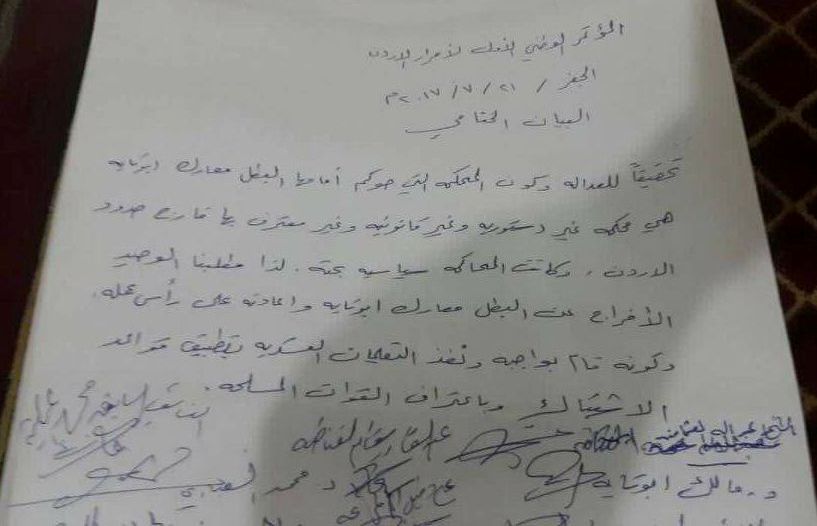 المؤتمر الوطني الأول لأحرار الاردن
الجفر / ٢١ / ٧ / ٢٠١٧م
البيان الختامي
تحقيقاً للعداله وكون المحكمه التي حوكم أمامها البطل معارك ابوتايه
هي محكمه غير دستوريه وغير قانونيه وغير معترف بها خارج حدود
الاردن، وكانت المحاكمه سياسيه بحته. لذا مطلبنا الوحيد
الأفراج عن البطل معارك ابوتايه واعادته على رأس عمله.
وكونه قام بواجبه ونفذ التعليمات العسكريه بتطبيق قواعد
الاشتباك وباعتراف القوات المسلحه.
د. مالك ابوتايه
د محمد